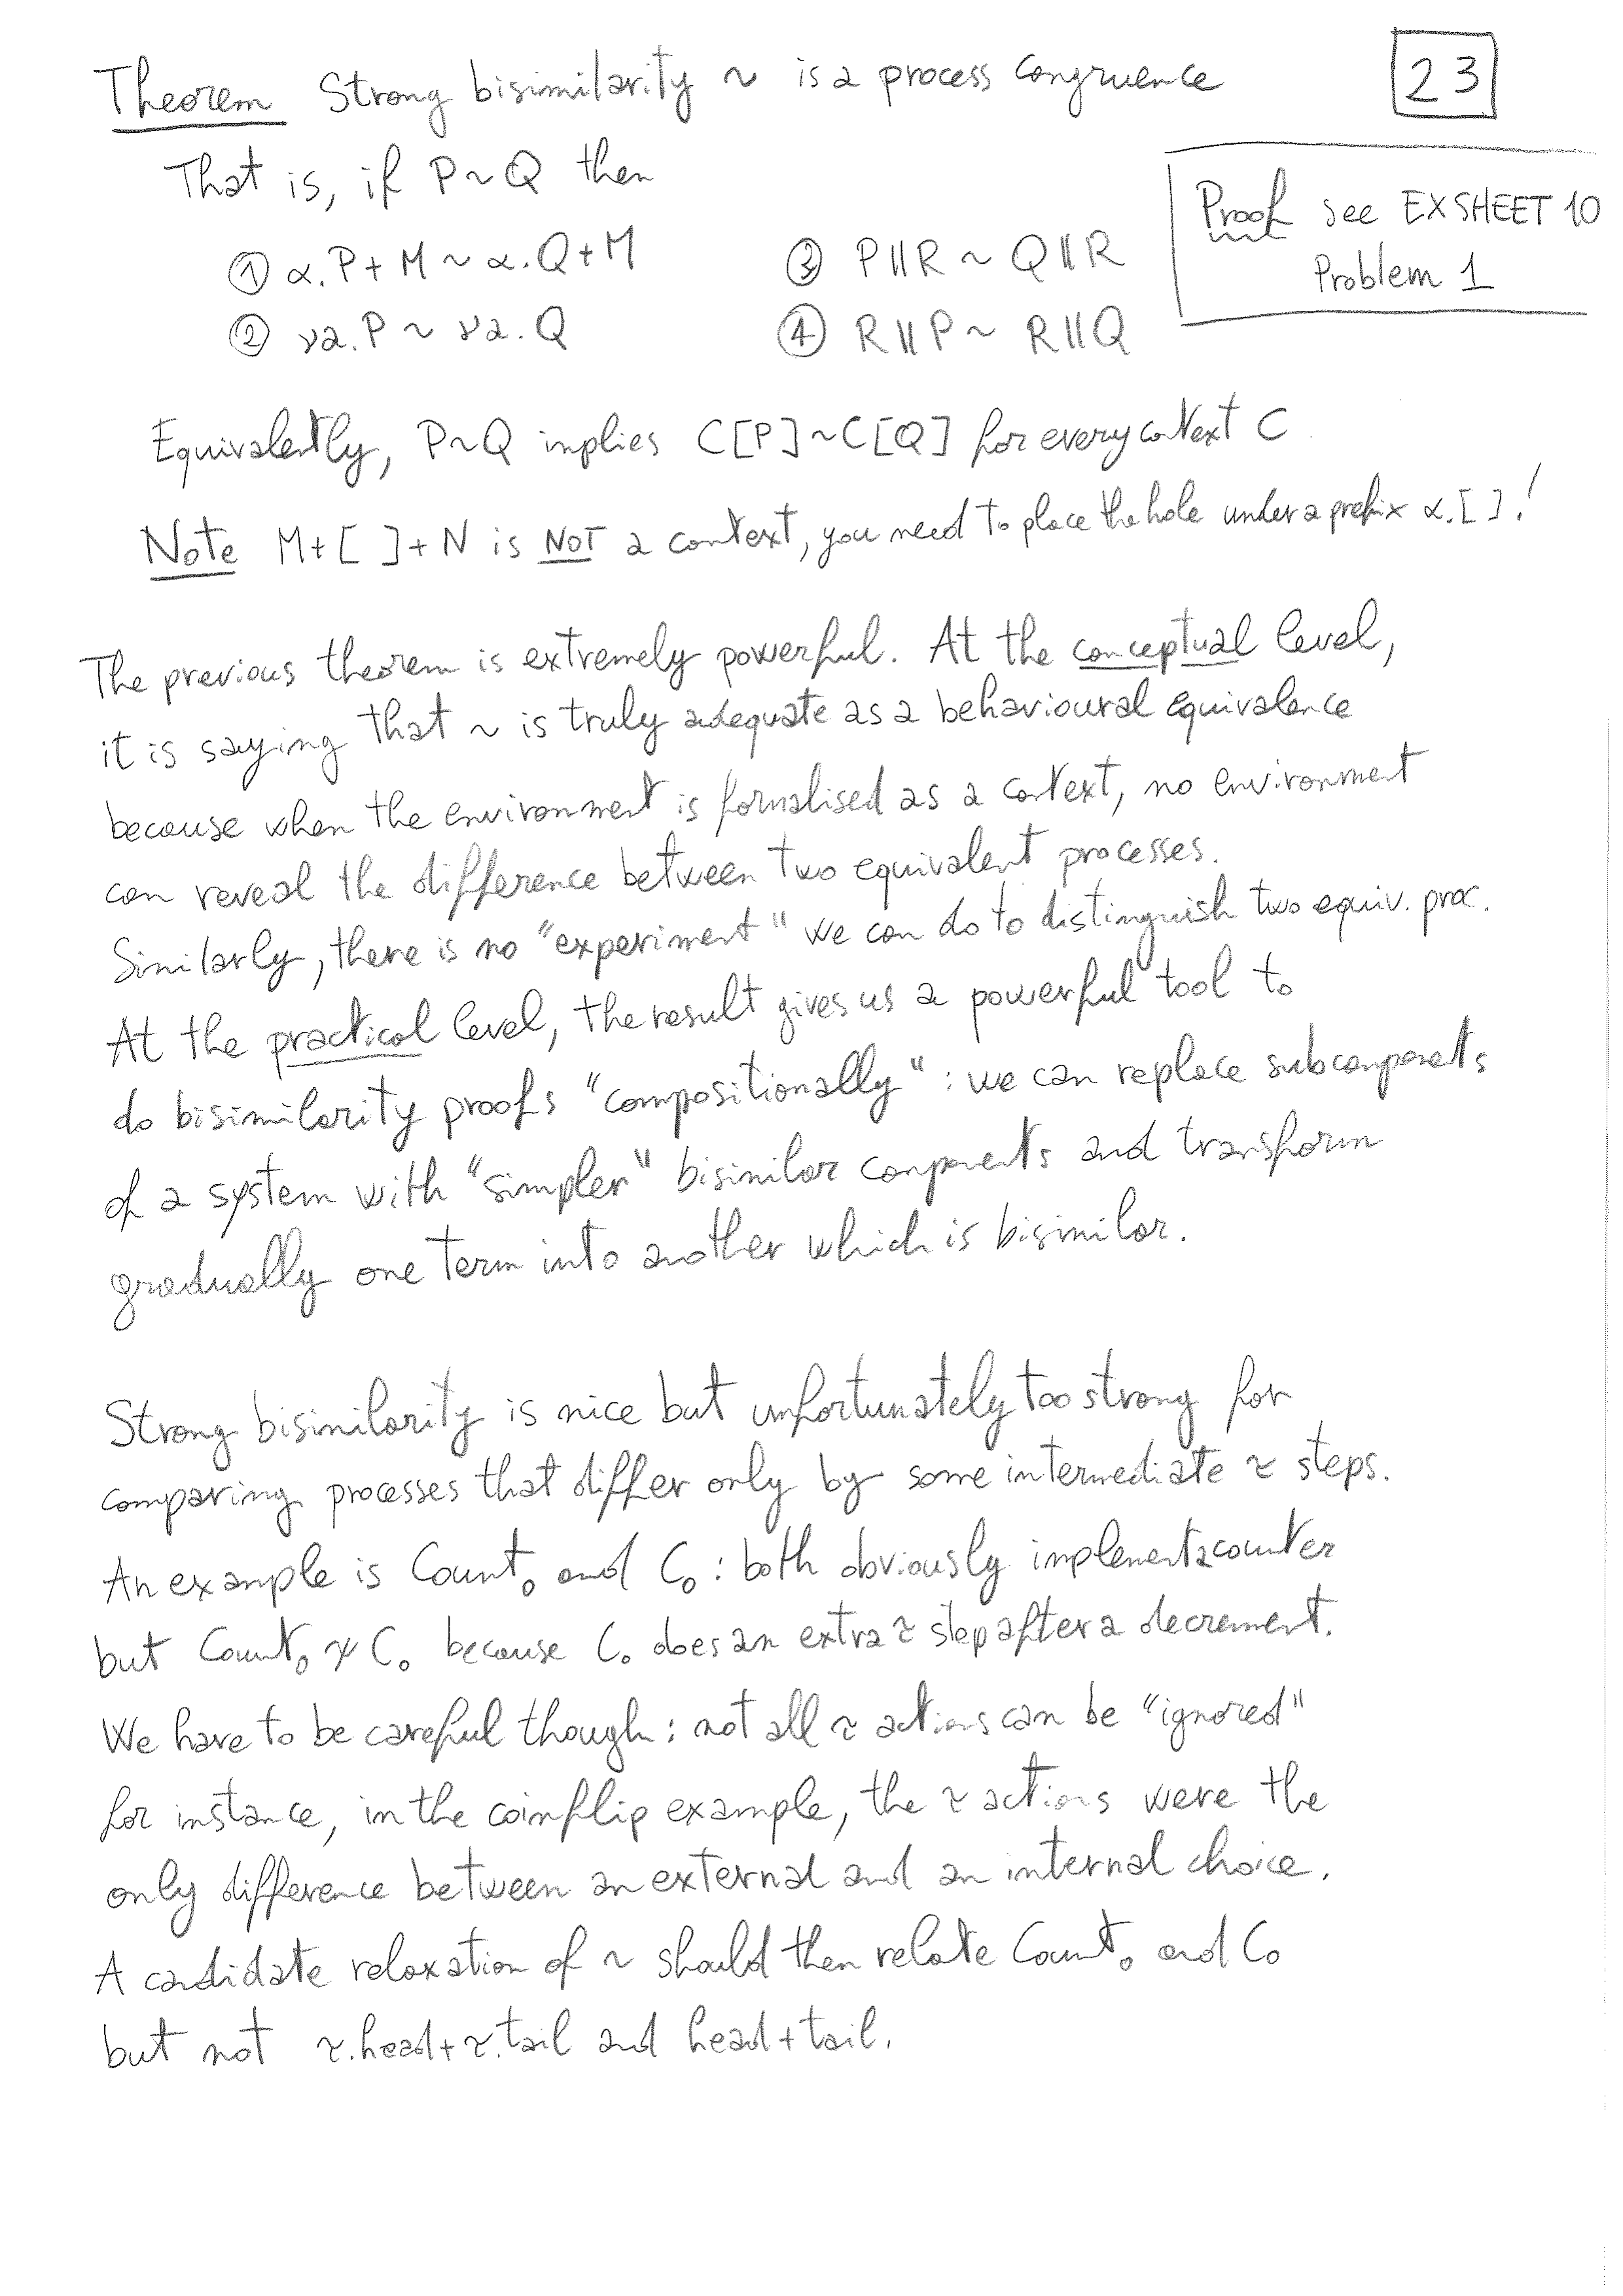 Theorem Strong bisimilarity ~ is a process congruence
23
That is, if P ~ Q then
Proof see EXSHEET 10
Problem 1
① α.P + M ~ α.Q + M
③ P ∥ R ~ Q ∥ R
② νa.P ~ νa.Q
④ R ∥ P ~ R ∥ Q
Equivalently, P~Q implies C[P] ~ C[Q] for every context C
Note M+[ ]+N is NOT a context, you need to place the hole under a prefix α.[ ]!
The previous theorem is extremely powerful. At the conceptual level,
it is saying that ~ is truly adequate as a behavioural equivalence
because when the environment is formalised as a context, no environment
can reveal the difference between two equivalent processes.
Similarly, there is no "experiment" we can do to distinguish two equiv. proc.
At the practical level, the result gives us a powerful tool to
do bisimilarity proofs "compositionally": we can replace subcomponents
of a system with "simpler" bisimilar components and transform
gradually one term into another which is bisimilar.
Strong bisimilarity is nice but unfortunately too strong for
comparing processes that differ only by some intermediate τ steps.
An example is Count₀ and C₀: both obviously implement a counter
but Count₀ ≁ C₀ because C₀ does an extra τ step after a decrement.
We have to be careful though: not all τ actions can be "ignored"
for instance, in the coinflip example, the τ actions were the
only difference between an external and an internal choice.
A candidate relaxation of ~ should then relate Count₀ and C₀
but not τ.head + τ.tail and head + tail.